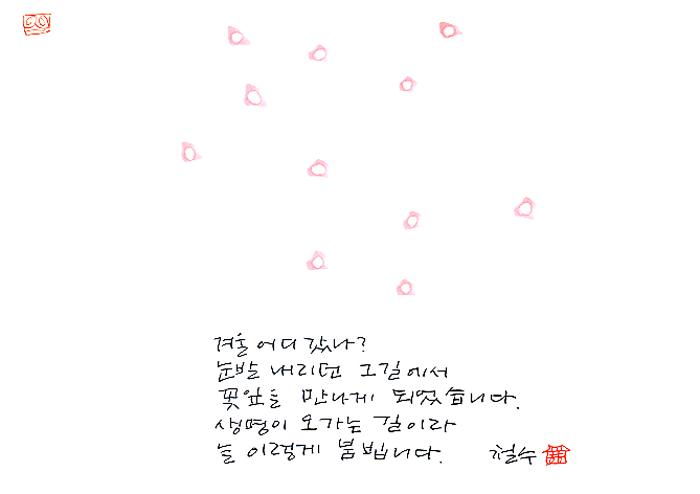 겨울 어디 갔나?
눈발 내리던 그 길에서
꽃잎을 만나게 되었습니다.
생명이 오가는 길이라
늘 이렇게 붐빕니다. 철수